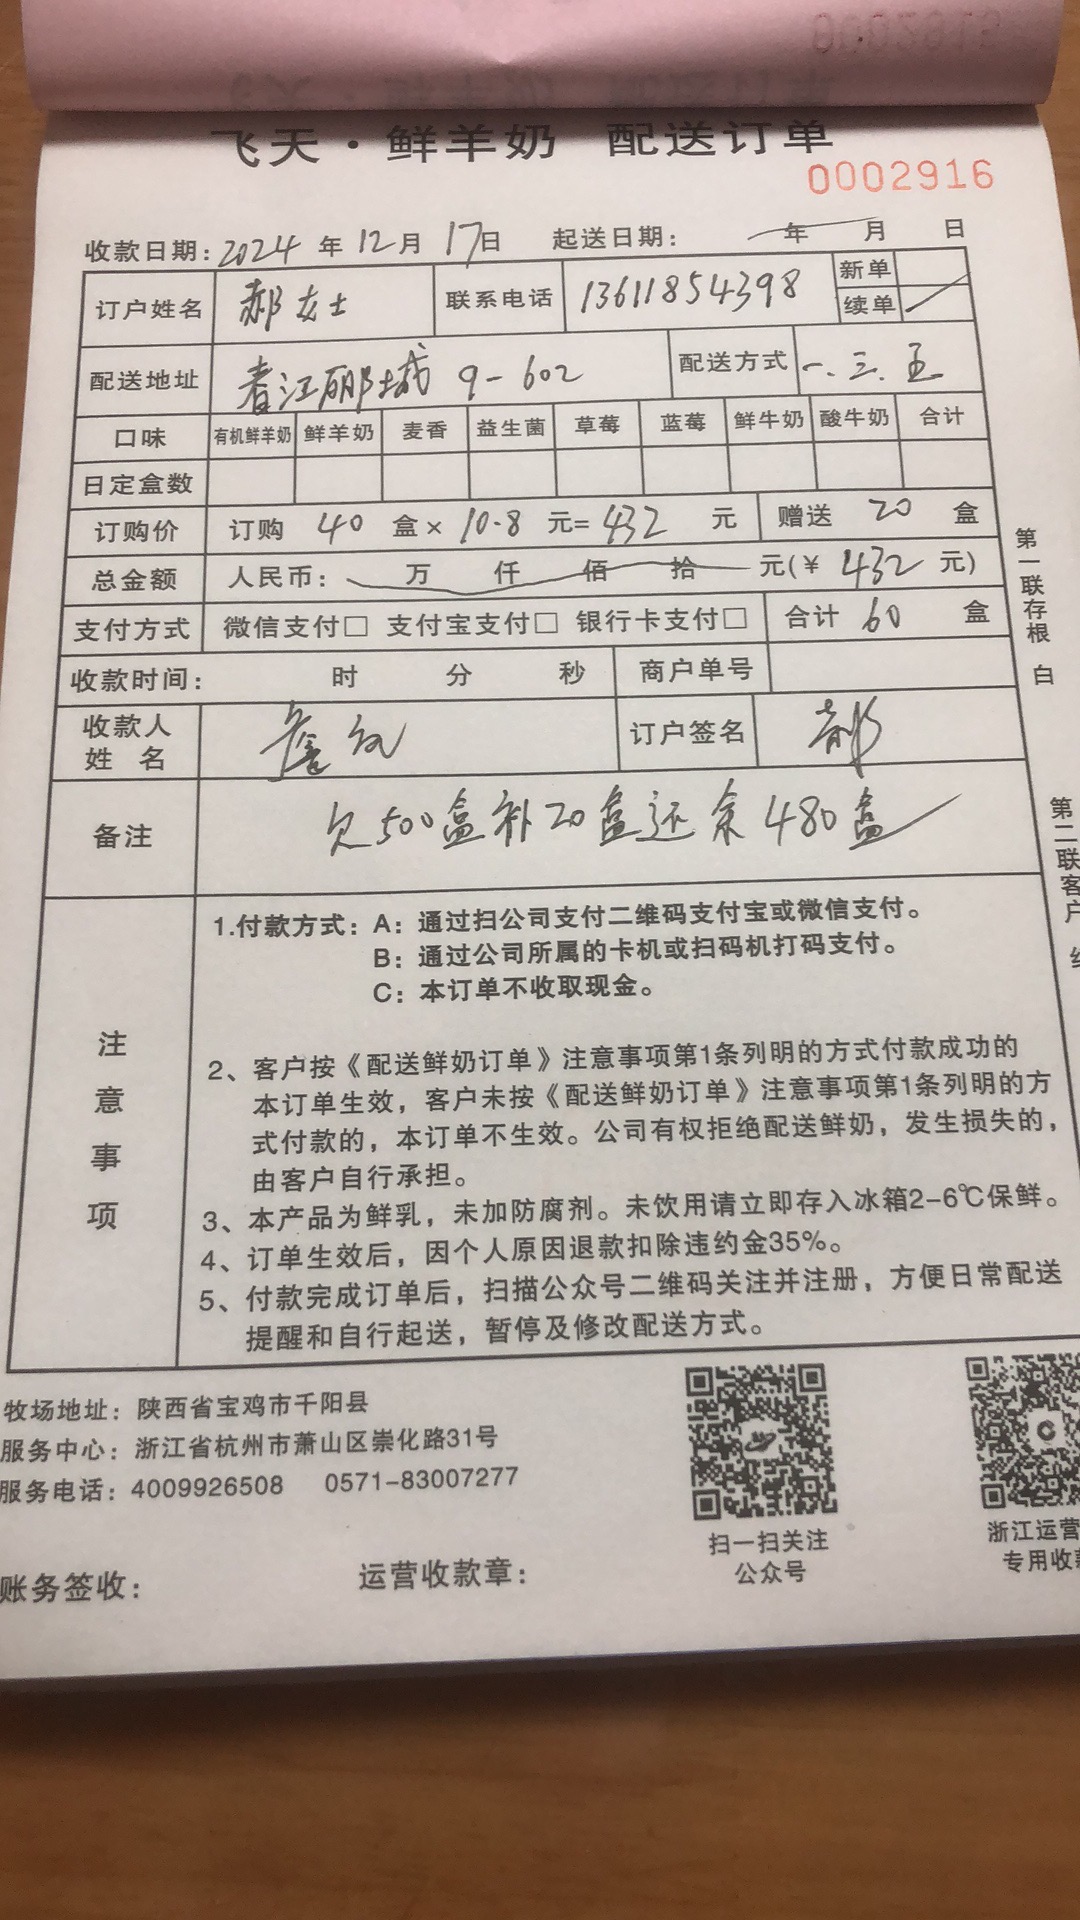 飞天·鲜羊奶 配送订单
0002916
收款日期：2024 年 12 月 17 日 起送日期： 年 月 日
订户姓名 郝女士 联系电话 13611854398 新单
续单
配送地址 春江郦城 9-602 配送方式 一.三.五
口味 有机鲜羊奶 鲜羊奶 麦香 益生菌 草莓 蓝莓 鲜牛奶 酸牛奶 合计
日定盒数
订购价 订购 40 盒× 10.8 元= 432 元 赠送 20 盒
总金额 人民币： 万 仟 佰 拾 元(￥ 432 元)
支付方式 微信支付□ 支付宝支付□ 银行卡支付□ 合计 60 盒
收款时间： 时 分 秒 商户单号
收款人姓名 订户签名 郝
备注 欠500盒补20盒还余480盒
注意事项
1.付款方式：A：通过扫公司支付二维码支付宝或微信支付。
B：通过公司所属的卡机或扫码机打码支付。
C：本订单不收取现金。
2、客户按《配送鲜奶订单》注意事项第1条列明的方式付款成功的
本订单生效，客户未按《配送鲜奶订单》注意事项第1条列明的方
式付款的，本订单不生效。公司有权拒绝配送鲜奶，发生损失的，
由客户自行承担。
3、本产品为鲜乳，未加防腐剂。未饮用请立即存入冰箱2-6℃保鲜。
4、订单生效后，因个人原因退款扣除违约金35%。
5、付款完成订单后，扫描公众号二维码关注并注册，方便日常配送
提醒和自行起送，暂停及修改配送方式。
第一联存根 白
第二联客户
牧场地址：陕西省宝鸡市千阳县
服务中心：浙江省杭州市萧山区崇化路31号
服务电话：4009926508 0571-83007277
扫一扫关注
公众号
浙江运营
专用收
账务签收： 运营收款章：